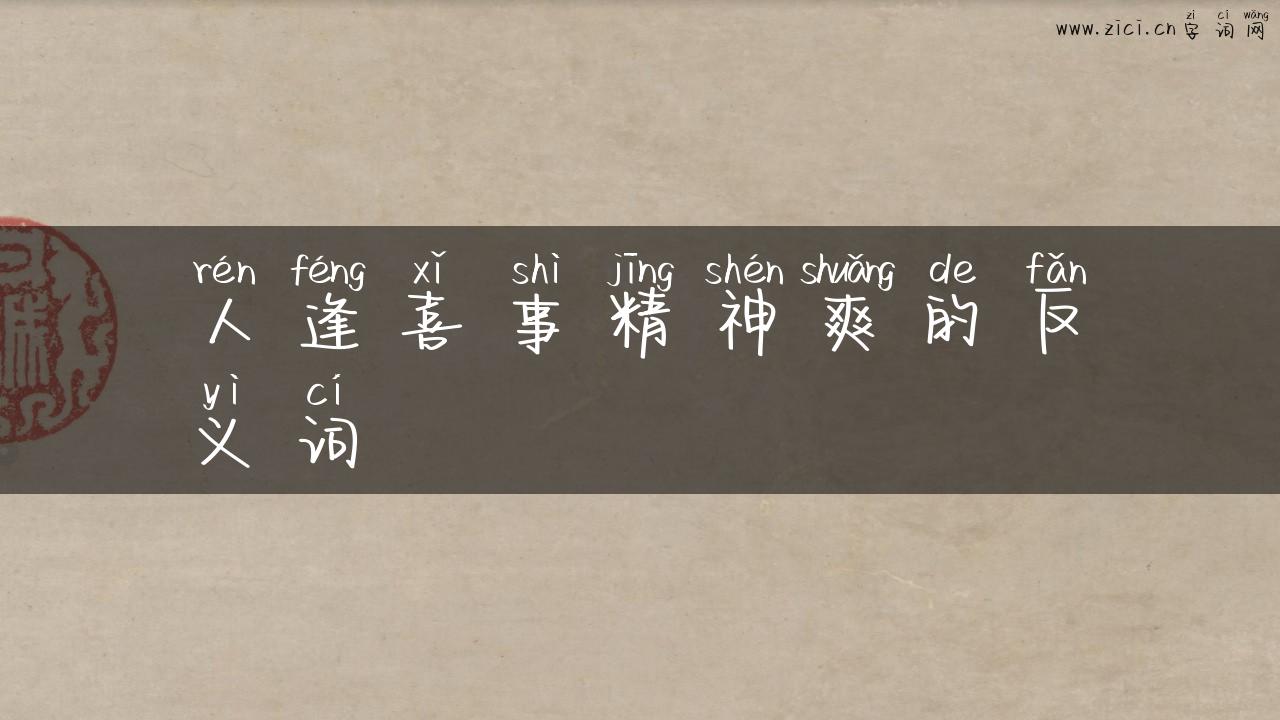 www.zici.cn zì cí wǎng
字词网
rén féng xǐ shì jīng shén shuǎng de fǎn
人逢喜事精神爽的反
yì cí
义词